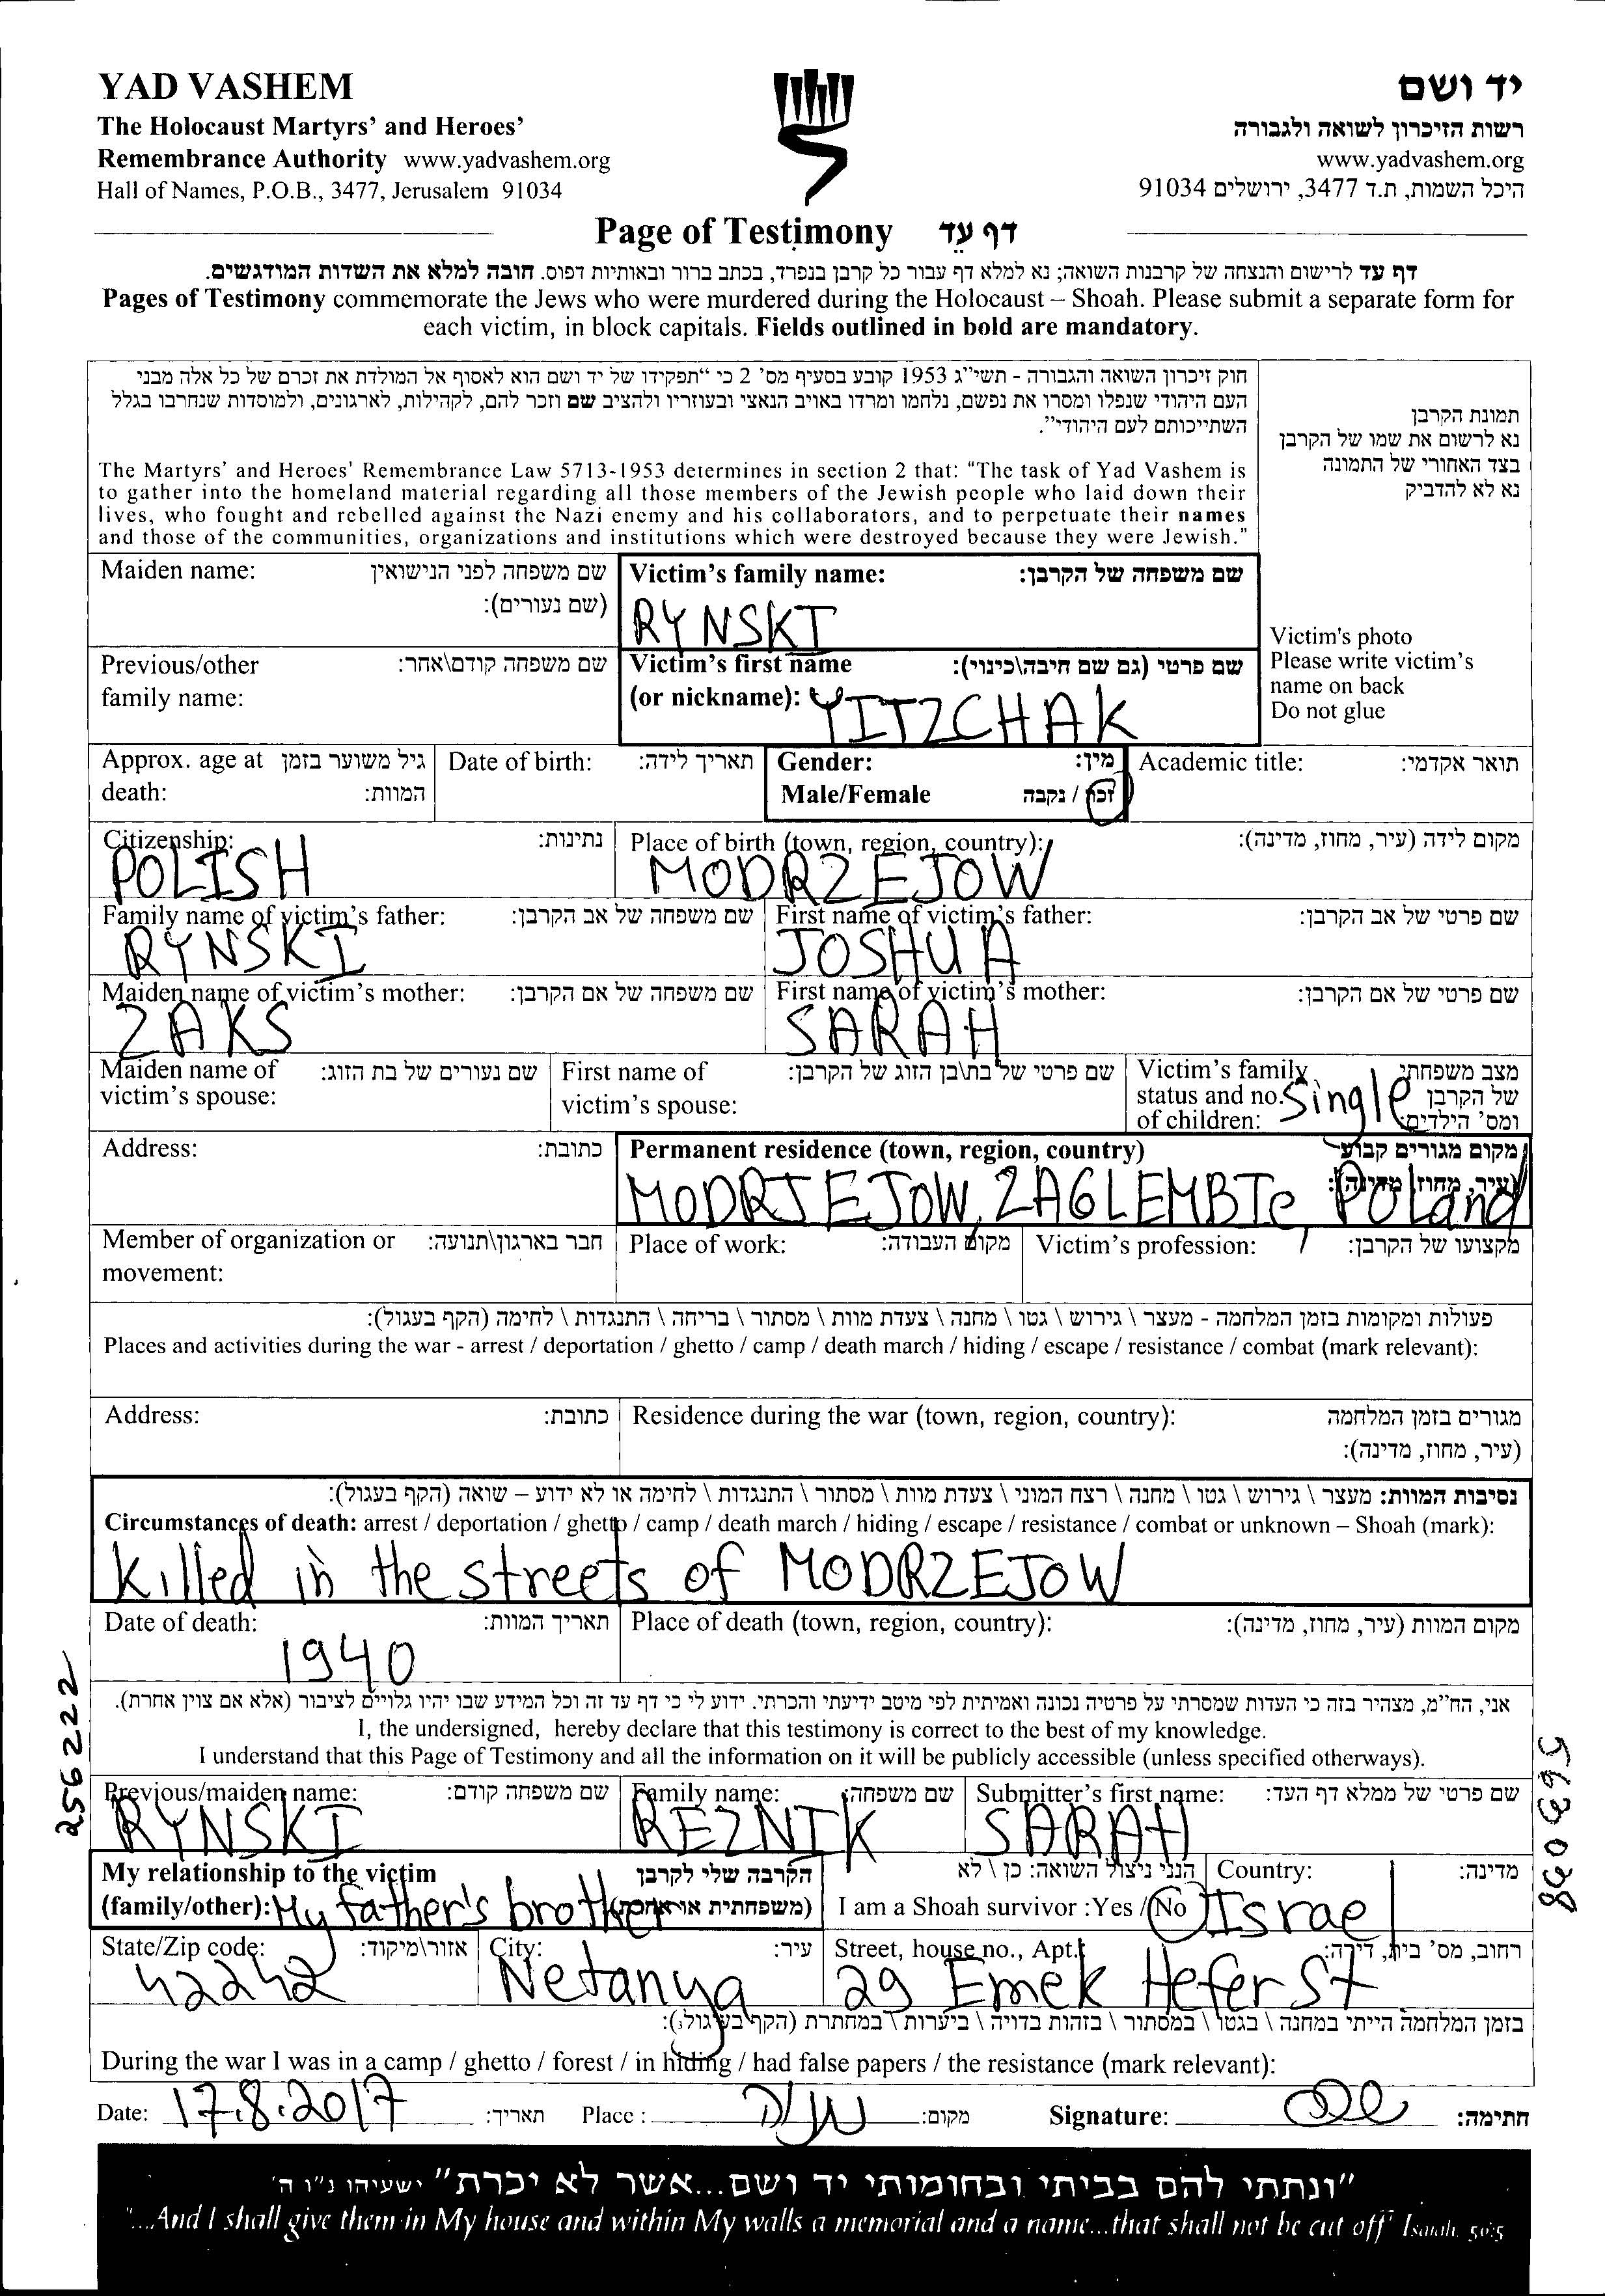 YAD VASHEM
The Holocaust Martyrs' and Heroes'
Remembrance Authority www.yadvashem.org
Hall of Names, P.O.B., 3477, Jerusalem 91034
יד ושם
רשות הזיכרון לשואה ולגבורה
www.yadvashem.org
היכל השמות, ת.ד 3477, ירושלים 91034
Page of Testimony דף עֵד
דף עד לרישום והנצחה של קרבנות השואה; נא למלא דף עבור כל קרבן בנפרד, בכתב ברור ובאותיות דפוס. חובה למלא את השדות המודגשים.
Pages of Testimony commemorate the Jews who were murdered during the Holocaust – Shoah. Please submit a separate form for
each victim, in block capitals. Fields outlined in bold are mandatory.
חוק זיכרון השואה והגבורה - תשי"ג 1953 קובע בסעיף מס' 2 כי "תפקידו של יד ושם הוא לאסוף אל המולדת את זכרם של כל אלה מבני
העם היהודי שנפלו ומסרו את נפשם, נלחמו ומרדו באויב הנאצי ובעוזריו ולהציב שם וזכר להם, לקהילות, לארגונים, ולמוסדות שנחרבו בגלל
השתייכותם לעם היהודי".
The Martyrs' and Heroes' Remembrance Law 5713-1953 determines in section 2 that: "The task of Yad Vashem is
to gather into the homeland material regarding all those members of the Jewish people who laid down their
lives, who fought and rebelled against the Nazi enemy and his collaborators, and to perpetuate their names
and those of the communities, organizations and institutions which were destroyed because they were Jewish."
תמונת הקרבן
נא לרשום את שמו של הקרבן
בצד האחורי של התמונה
נא לא להדביק
Victim's photo
Please write victim's
name on back
Do not glue
Maiden name: שם משפחה לפני הנישואין
(שם נעורים):
Victim's family name: שם משפחה של הקרבן:
RYNSKI
Previous/other שם משפחה קודם\אחר:
family name:
Victim's first name שם פרטי (גם שם חיבה\כינוי):
(or nickname): YITZCHAK
Approx. age at גיל משוער בזמן
death: המוות:
Date of birth: תאריך לידה:
Gender: מין:
Male/Female זכר / נקבה
Academic title: תואר אקדמי:
Citizenship: נתינות:
POLISH
Place of birth (town, region, country): מקום לידה (עיר, מחוז, מדינה):
MODRZEJOW
Family name of victim's father: שם משפחה של אב הקרבן:
RYNSKI
First name of victim's father: שם פרטי של אב הקרבן:
JOSHUA
Maiden name of victim's mother: שם משפחה של אם הקרבן:
ZAKS
First name of victim's mother: שם פרטי של אם הקרבן:
SARAH
Maiden name of שם נעורים של בת הזוג:
victim's spouse:
First name of שם פרטי של בת\בן הזוג של הקרבן:
victim's spouse:
Victim's family מצב משפחתי
status and no. Single של הקרבן
of children: ומס' הילדים:
Address: כתובת:
Permanent residence (town, region, country) מקום מגורים קבוע
(עיר, מחוז, מדינה):
MODRJEJOW, ZAGLEMBIe, Poland
Member of organization or חבר בארגון\תנועה:
movement:
Place of work: מקום העבודה:
Victim's profession: מקצועו של הקרבן:
פעולות ומקומות בזמן המלחמה - מעצר \ גירוש \ גטו \ מחנה \ צעדת מוות \ מסתור \ בריחה \ התנגדות \ לחימה (הקף בעגול):
Places and activities during the war - arrest / deportation / ghetto / camp / death march / hiding / escape / resistance / combat (mark relevant):
Address: כתובת:
Residence during the war (town, region, country): מגורים בזמן המלחמה
(עיר, מחוז, מדינה):
נסיבות המוות: מעצר \ גירוש \ גטו \ מחנה \ רצח המוני \ צעדת מוות \ מסתור \ התנגדות \ לחימה או לא ידוע – שואה (הקף בעגול):
Circumstances of death: arrest / deportation / ghetto / camp / death march / hiding / escape / resistance / combat or unknown – Shoah (mark):
Killed in the streets of MODRZEJOW
Date of death: תאריך המוות:
1940
Place of death (town, region, country): מקום המוות (עיר, מחוז, מדינה):
אני, הח"מ, מצהיר בזה כי העדות שמסרתי על פרטיה נכונה ואמיתית לפי מיטב ידיעתי והכרתי. ידוע לי כי דף עד זה וכל המידע שבו יהיו גלויים לציבור (אלא אם צוין אחרת).
I, the undersigned, hereby declare that this testimony is correct to the best of my knowledge.
I understand that this Page of Testimony and all the information on it will be publicly accessible (unless specified otherways).
256222
Previous/maiden name: שם משפחה קודם:
RYNSKI
Family name: שם משפחה:
REZNIK
Submitter's first name: שם פרטי של ממלא דף העד:
SARAH
My relationship to the victim הקרבה שלי לקרבן
(family/other): My father's brother (משפחתית או אחרת)
הנני ניצול השואה: כן \ לא
I am a Shoah survivor :Yes / No
Country: מדינה:
Israel
State/Zip code: אזור\מיקוד:
42242
City: עיר:
Netanya
Street, house no., Apt.: רחוב, מס' בית, דירה:
29 Emek Hefer St
בזמן המלחמה הייתי במחנה \ בגטו \ במסתור \ בזהות בדויה \ ביערות \ במחתרת (הקף בעיגול):
During the war I was in a camp / ghetto / forest / in hiding / had false papers / the resistance (mark relevant):
Date: 17.8.2017 תאריך: Place : מקום: Signature: חתימה:
"ונתתי להם בביתי ובחומותי יד ושם...אשר לא יכרת" ישעיהו נ"ו ה'
"...And I shall give them in My house and within My walls a memorial and a name...that shall not be cut off" Isaiah, 56:5